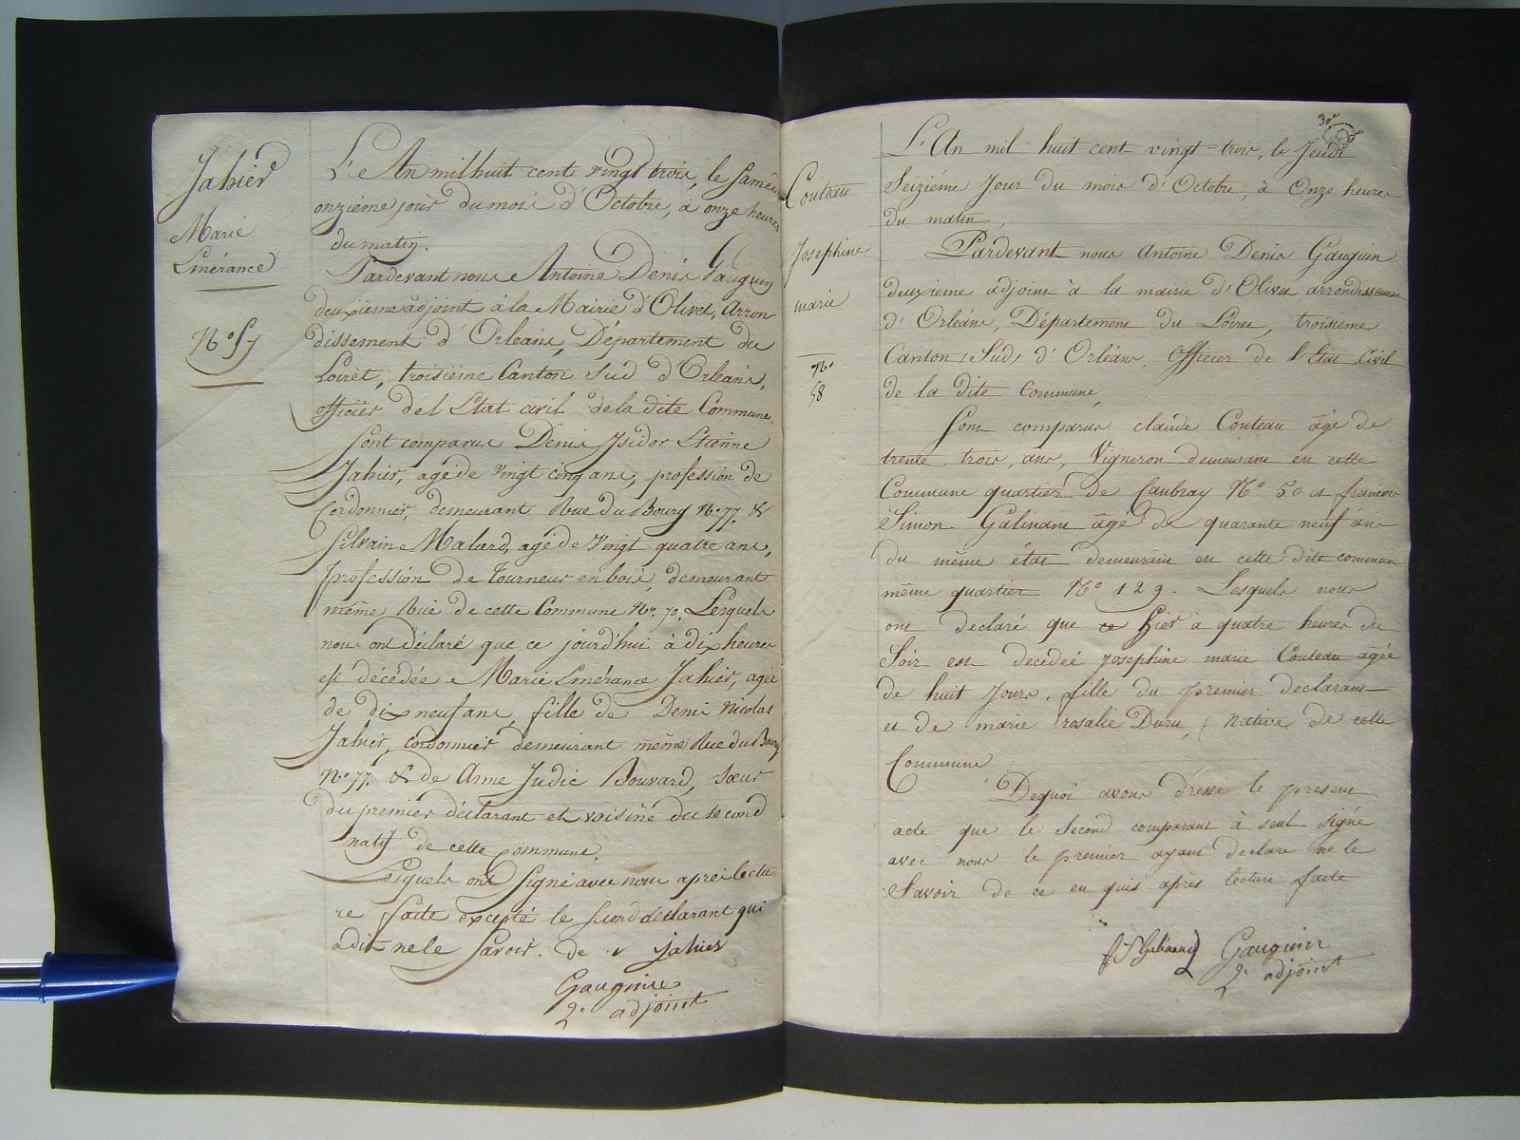 Jahier
Marie
Emérance
N.o 57
L'An mil huit cent vingt trois, le samedi
onzième jour du mois d'Octobre, à onze heures
du matin.
Pardevant nous Antoine Denis Gauguin
deuxième adjoint à la Mairie d'Olivet, Arron
dissement d'Orleans, Département du
Loiret, troisième Canton Sud d'Orleans,
officier de l'Etat civil de la dite Commune.
Sont comparus Denis Isidor Etienne
Jahier, agé de vingt cinq ans, profession de
Cordonnier, demeurant Rue du Bourg N.o 77. &
Silvain Malard, agé de vingt quatre ans,
profession de Tourneur en bois, demeurant
même Rue de cette Commune N.o 70. Lesquels
nous ont déclaré que ce jourd'hui à dix heures
est décédée Marie Emérance Jahier, agée
de dix neuf ans, fille de Denis Nicolas
Jahier, cordonnier demeurant même Rue du Bourg
N.o 77. & de Anne Judic Bouvard, sœur
du premier déclarant et voisine du second
natif de cette commune.
Lesquels ont signé avec nous après lectu
re faite excepté le second déclarant qui
a dit ne le savoir. de Jahier
Gauguin
2.e adjoint
30
Couteau
Josephine
marie
N.o
58
L'An mil huit cent vingt-trois, le Jeudi
Seizième Jour du mois d'Octobre, à Onze heures
du matin,
Pardevant nous Antoine Denis Gauguin
deuxieme adjoint à la mairie d'Olivet arrondissement
d'Orléans, Département du Loiret, troisieme
Canton (Sud) d'Orléans, Officier de l'Etat Civil
de la dite Commune,
Sont comparus claude Couteau âgé de
trente trois, ans, Vigneron demeurant en cette
Commune quartier de Caubray N.o 50 et francois
Simon Galinand âgé de quarante neuf ans
du même état demeurant en cette dite commune
même quartier N.o 129. Lesquels nous
ont declaré que ce hier à quatre heures du
Soir est decedeé Josephine marie Couteau agée
de huit Jours, fille du premier declarant
et de marie rosalie Duru, native de cette
Commune
Dequoi avons dressé le present
acte que le Second comparant à seul signé
avec nous le premier ayant declare ne le
Savoir de ce enquis après lecture faite
f S Galinand Gauguin
2.e adjoint